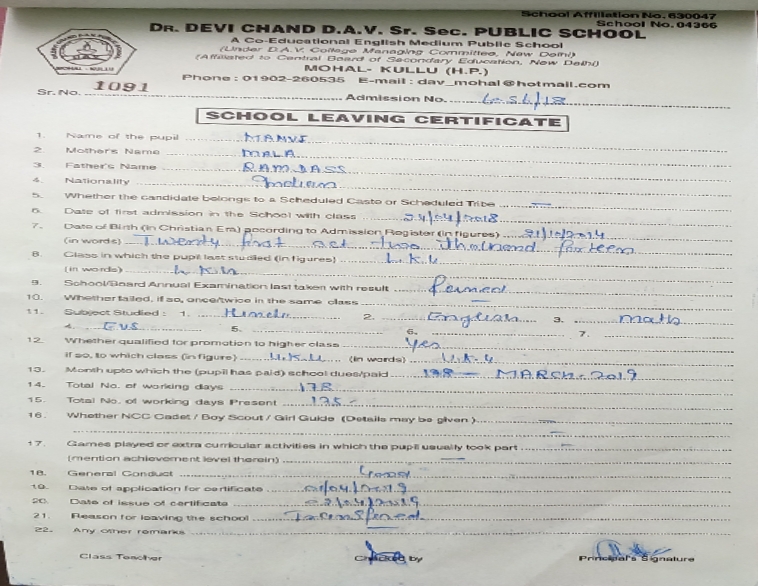 School Affiliation No. 630047
School No. 04366
DR. DEVI CHAND D.A.V. Sr. Sec. PUBLIC SCHOOL
A Co-Educational English Medium Public School
(Under D.A.V. College Managing Committee, New Delhi)
(Affiliated to Central Board of Secondary Education, New Delhi)
MOHAL- KULLU (H.P.)
Phone : 01902-260535 E-mail : dav_mohal@hotmail.com
MOHAL - KULLU
Sr. No. 1091 Admission No.
SCHOOL LEAVING CERTIFICATE
1. Name of the pupil MANVI
2. Mother's Name MALA
3. Father's Name RAM DASS
4. Nationality Indian
5. Whether the candidate belongs to a Scheduled Caste or Scheduled Tribe —
6. Date of first admission in the School with class 24/04/2018
7. Date of Birth (in Christian Era) according to Admission Register (in figures) 21/10/2014
(in words) Twenty first oct two thousand forteen
8. Class in which the pupil last studied (in figures) L.K.G
(in words) L.K.G
9. School/Board Annual Examination last taken with result Passed
10. Whether failed, if so, once/twice in the same class —
11. Subject Studied : 1. Hindi 2. English 3. maths
4. EVS 5. 6. 7.
12. Whether qualified for promotion to higher class Yes
if so, to which class (in figure) U.K.G (in words) U.K.G
13. Month upto which the (pupil has paid) school dues/paid MARCH-2019
14. Total No. of working days 178
15. Total No. of working days Present 175-
16. Whether NCC Cadet / Boy Scout / Girl Guide (Details may be given) —
17. Games played or extra curricular activities in which the pupil usually took part —
(mention achievement level therein) —
18. General Conduct Good
19. Date of application for certificate 01/04/2019
20. Date of issue of certificate 02/04/2019
21. Reason for leaving the school Transfered
22. Any other remarks —
Class Teacher Checked by Principal's Signature